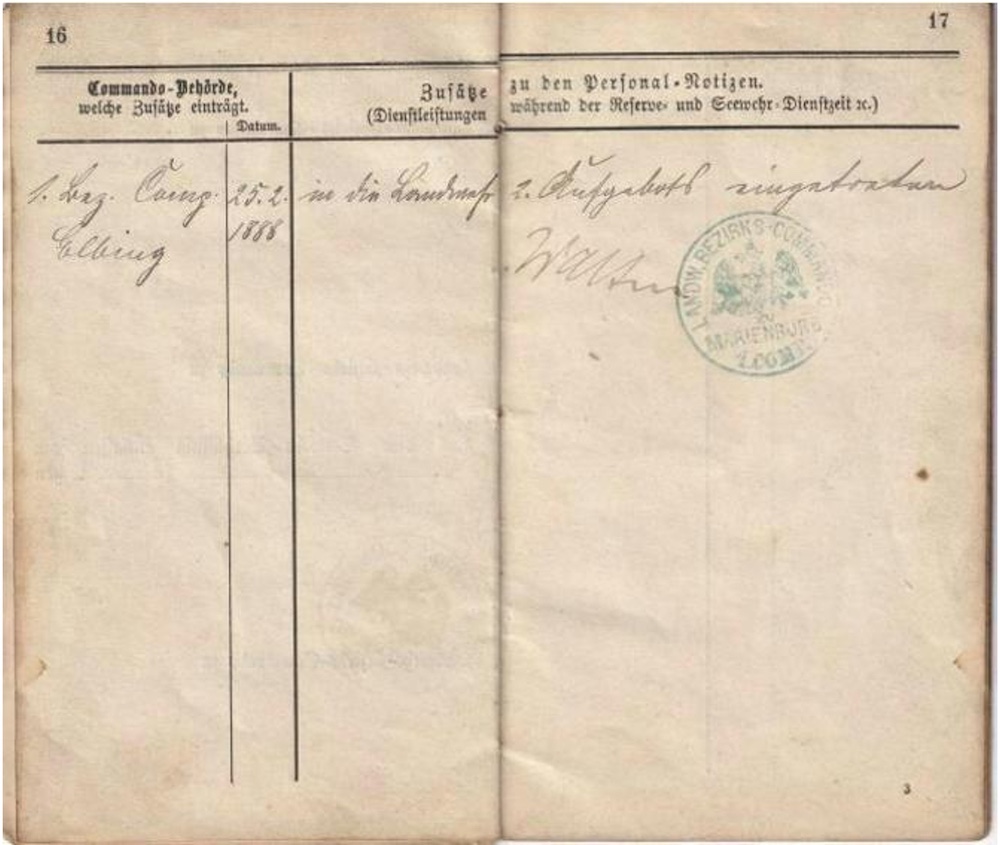 16
17
Commando-Behörde,
welche Zusätze einträgt.
Datum.
Zusätze zu den Personal-Notizen.
(Dienstleistungen während der Reserve- und Seewehr-Dienstzeit ꝛc.)
1. Bez. Comp. 25.2. in die Landwehr 2. Aufgebots eingetreten
Elbing 1888
LANDW. BEZIRKS-COMMANDO
MARIENBURG
1.COMP.
3